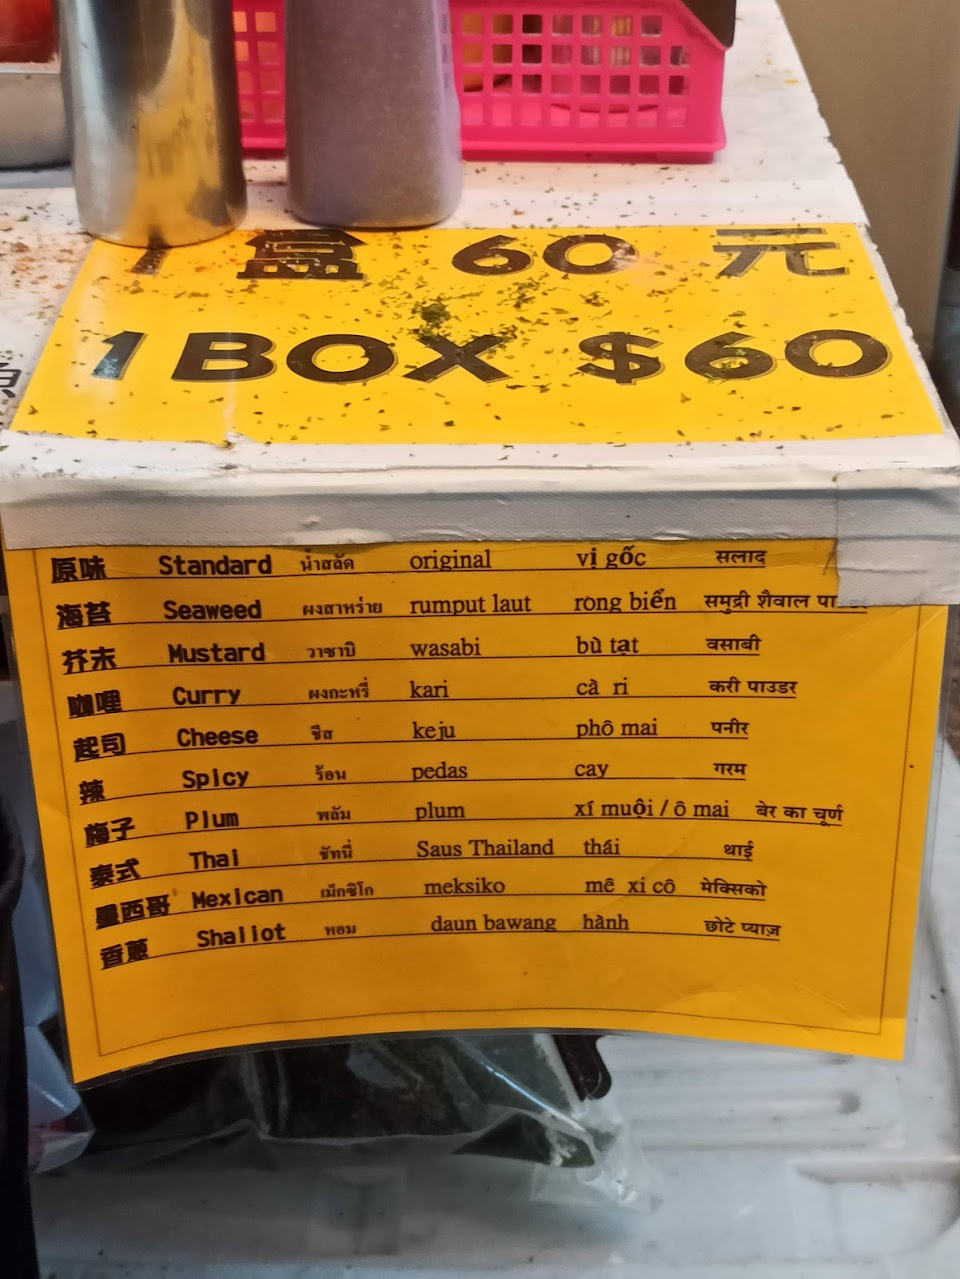 1 盒 60 元
1 BOX $60
原味 Standard น้ำสลัด original vị gốc सलाद
海苔 Seaweed ผงสาหร่าย rumput laut rong biển समुद्री शैवाल
芥末 Mustard วาซาบิ wasabi bù tạt वसाबी
咖哩 Curry ผงกะหรี่ kari cà ri करी पाउडर
起司 Cheese ชีส keju phô mai पनीर
辣 Spicy ร้อน pedas cay गरम
梅子 Plum พลัม plum xí muội / ô mai बेर का चूर्ण
泰式 Thai ชัทนี่ Saus Thailand thái थाई
墨西哥 Mexican เม็กซิโก meksiko mê xi cô मेक्सिको
香蔥 Shallot หอม daun bawang hành छोटे प्याज़